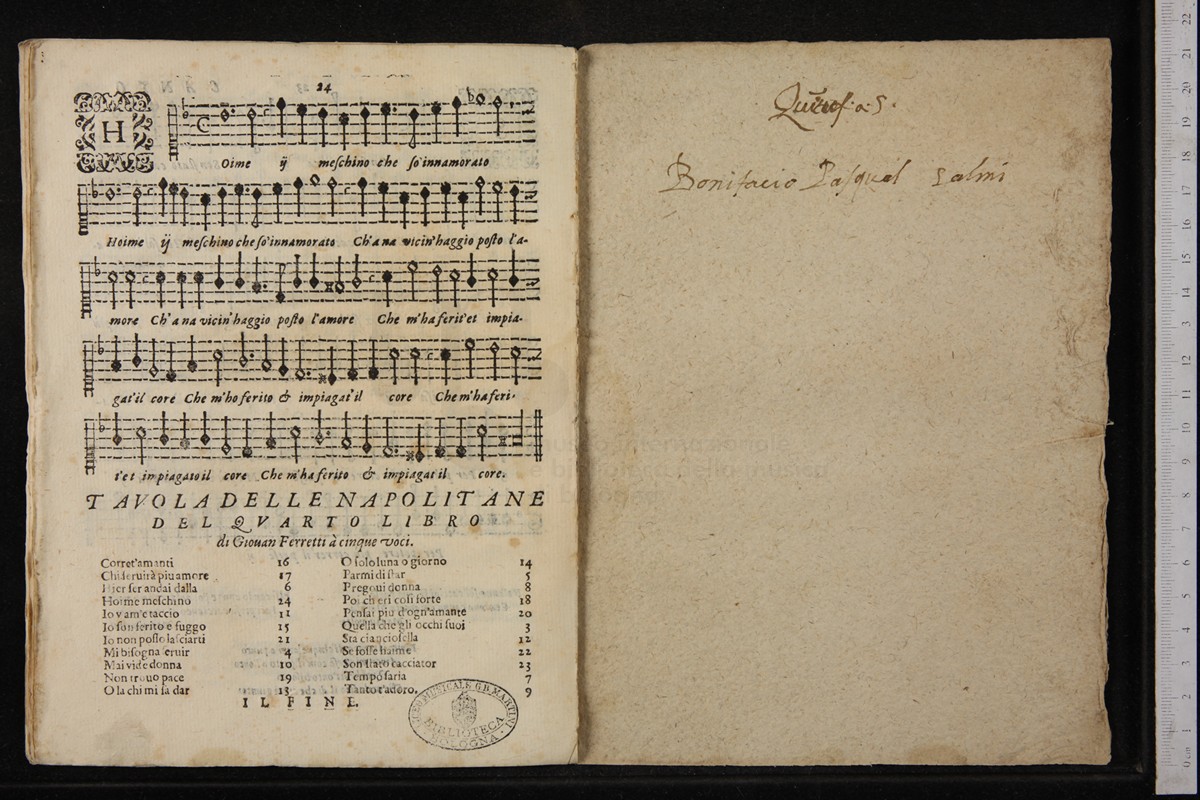 24
H
Oime ij meschino che so'innamorato
Hoime ij meschino che so'innamorato Ch'a na vicin'haggio posto l'a-
more Ch'a na vicin'haggio posto l'amore Che m'ha ferit'et impia-
gat'il core Che m'ho ferito & impiagat'il core Che m'ha feri-
t'et impiagato il core Che m'ha ferito & impiagat il core.
TAVOLA DELLE NAPOLITANE
DEL QVARTO LIBRO
di Giouan Ferretti à cinque voci.
Corret'amanti 16
Chi seruirà piu amore 17
Hier ser andai dalla 6
Hoime meschino 24
Io v'am'e taccio 11
Io son ferito e fuggo 15
Io non posso lasciarti 21
Mi bisogna seruir 4
Mai vide donna 10
Non trouo pace 19
O la chi mi sa dar 13
O solo luna o giorno 14
Parmi di star 5
Pregoui donna 8
Poi ch eri cosi forte 18
Pensai piu d'ogn'amante 20
Quella che gli occhi suoi 3
Sta cianciosella 12
Se fosse haime 22
Son stato cacciator 23
Tempo saria 7
Tanto t'adoro. 9
IL FINE.
LICEO MUSICALE G.B. MARTINI
BIBLIOTECA
BOLOGNA
a 5.
Bonifacio Pasqual salmi
museo internazionale
e biblioteca della musica
bologna